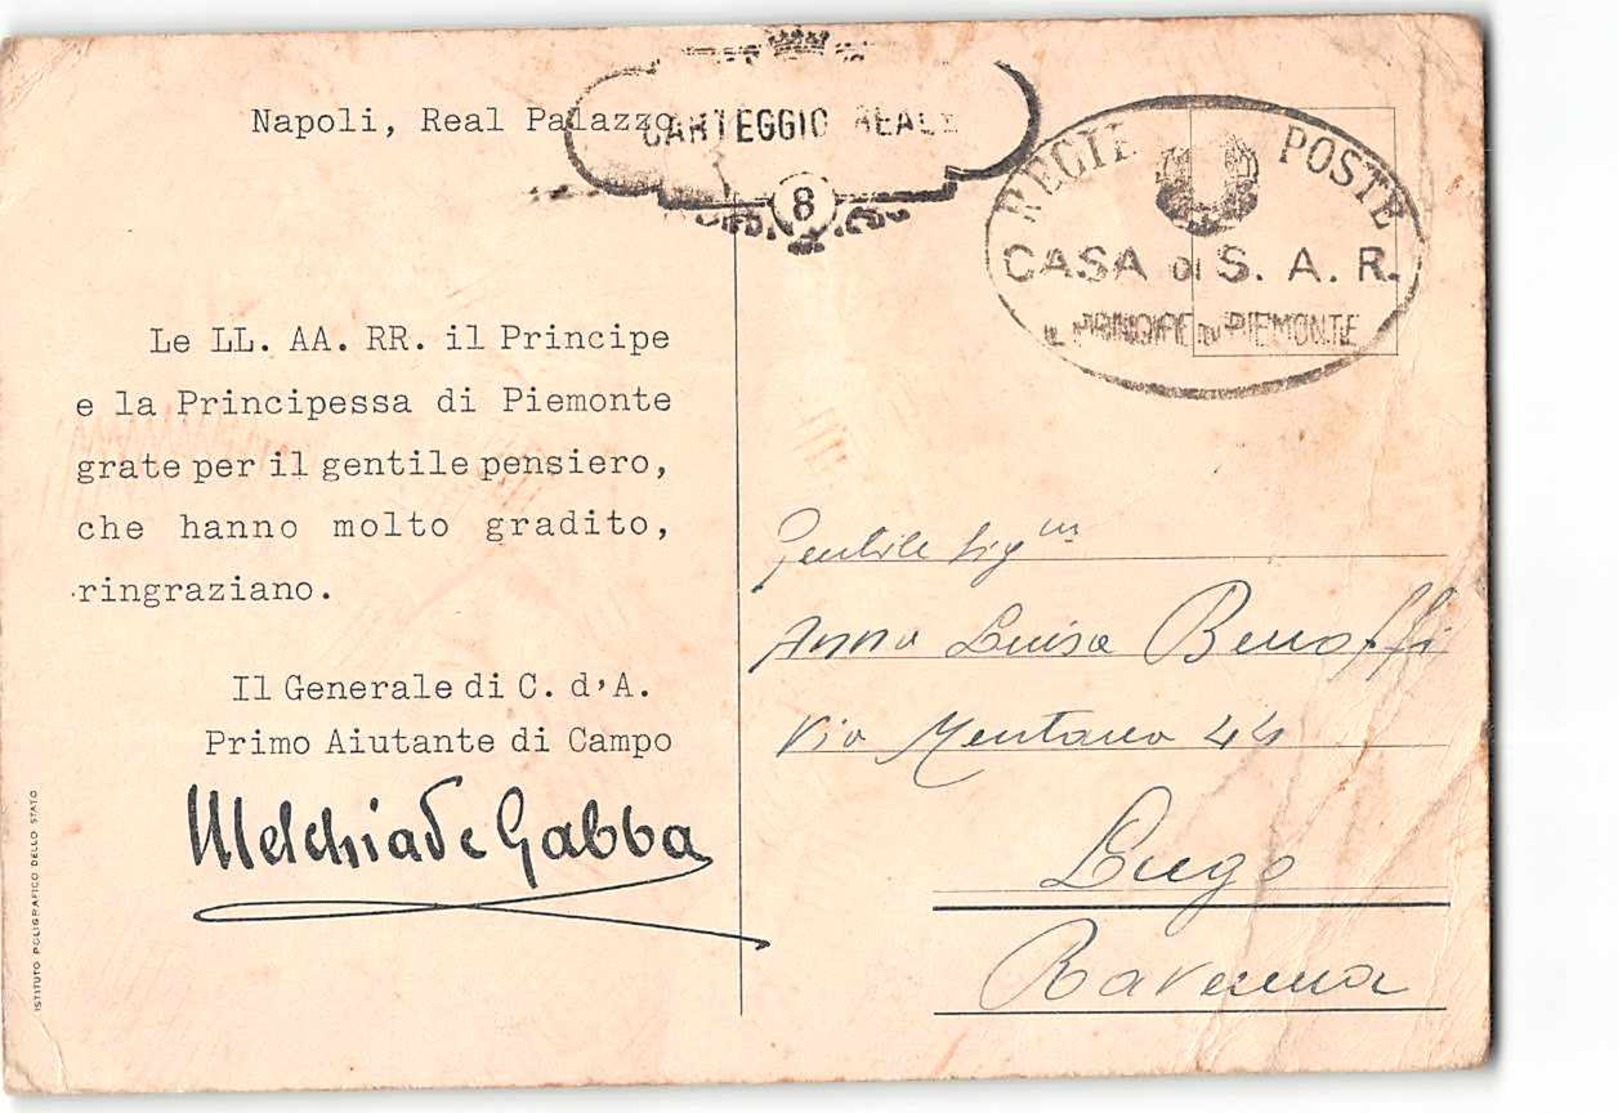 Napoli, Real Palazzo
CARTEGGIO REALE
8
REGIE POSTE
CASA DI S. A. R.
IL PRINCIPE DI PIEMONTE
Le LL. AA. RR. il Principe
e la Principessa di Piemonte
grate per il gentile pensiero,
che hanno molto gradito,
ringraziano.
Il Generale di C. d'A.
Primo Aiutante di Campo
Melchiade Gabba
ISTITUTO POLIGRAFICO DELLO STATO
Gentile Sig
Anna Luisa
Via Mentana 44
Lugo
Ravenna